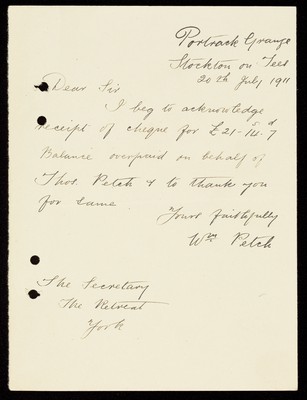 Portrack Grange
Stockton on Tees
20th July 1911
Dear Sir
I beg to acknowledge
receipt of cheque for £21-14s-7d
Balance overpaid on behalf of
Thos. Petch & to thank you
for same.
Yours faithfully
Wm Petch
The Secretary
The Retreat
York